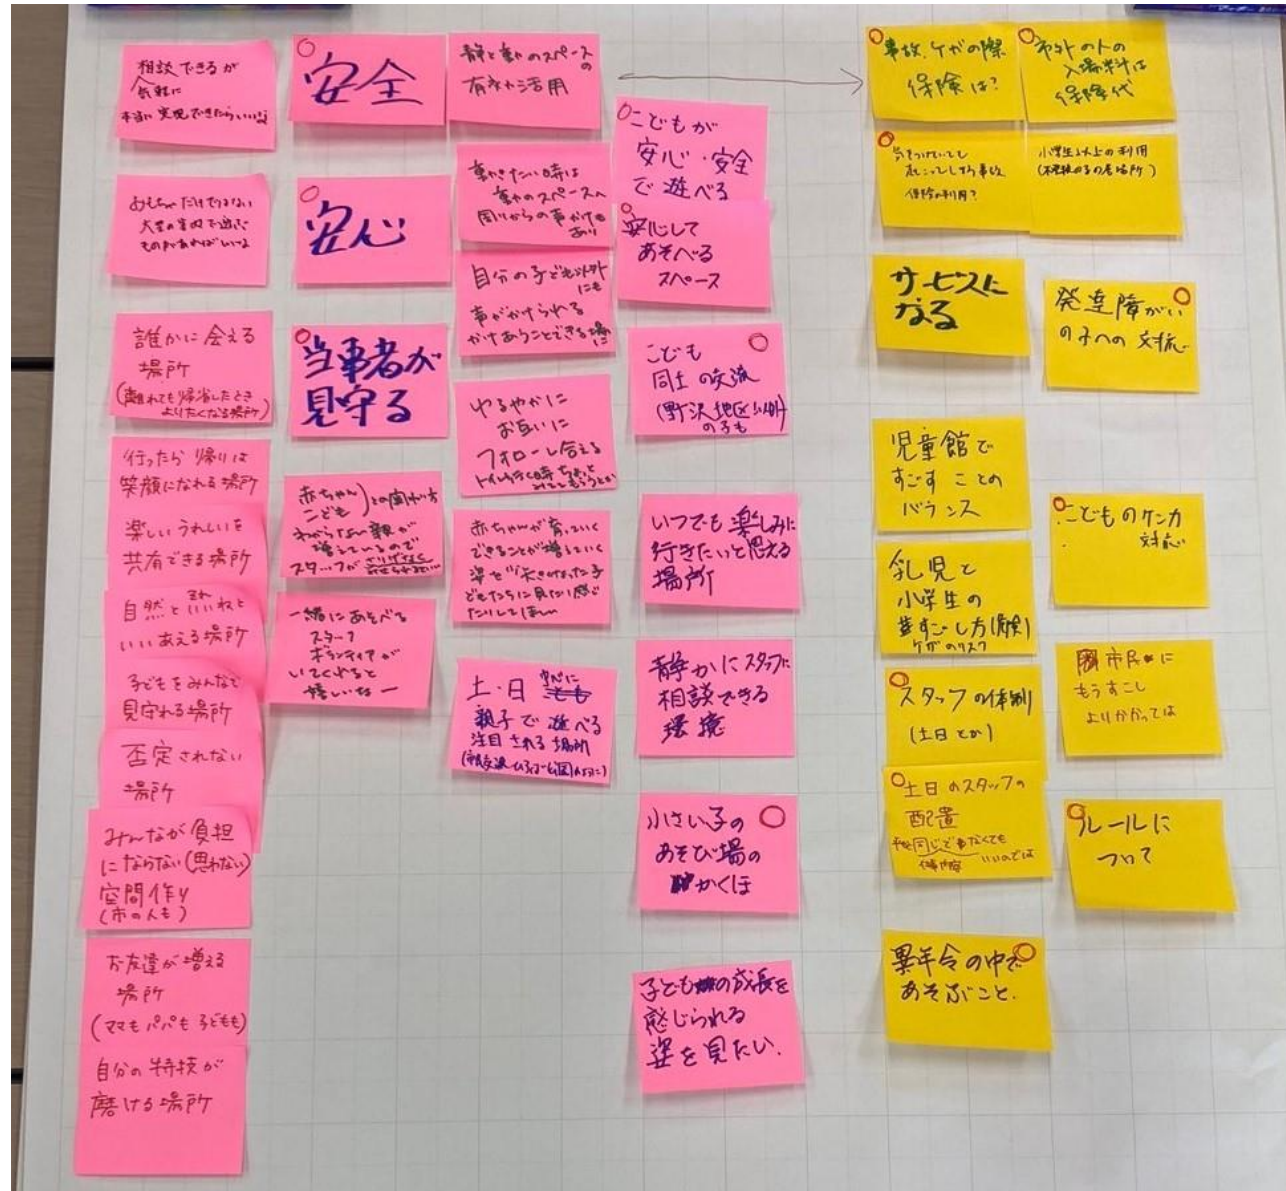 相談できるが
気軽に
本当に実現できたらいいな
おもちゃだけではない
大型の室内で遊ぶ
ものがあればいいな
誰かに会える
場所
(離れても帰省したとき
よりたくなる場所)
行ったら帰りは
笑顔になれる場所
楽しいうれしいを
共有できる場所
自然と
いいあえる場所
子どもをみんなで
見守れる場所
否定されない
場所
みんなが負担
にならない(思わない)
空間作り
(市の人も)
お友達が増える
場所
(ママもパパも子どもも)
自分の特技が
磨ける場所
安全
安心
当事者が
見守る
赤ちゃん
こども
との関わり方
わからない親が
増えているので
スタッフがさりげなく
一緒にあそべる
スタッフ
ボランティアが
いてくれると
嬉しいなー
静と動のスペースの
有効活用
動きたい時は
動のスペースへ
周りからの声かけも
あり
自分の子ども以外
にも
声がかけられる
かけあうことできる場に
ゆるやかに
お互いに
フォローし合える
トイレ行く時ちょっと
みててもらうとか
赤ちゃんが育っていく
できることが増えていく
姿を大きくなった子
どもたちに見たり感じ
たりしてほしい
土・日
親子で遊べる
注目される場所
こどもが
安心・安全
で遊べる
安心して
あそべる
スペース
こども
同士の交流
(野沢地区以外)
の子も
いつでも楽しみに
行きたいと思える
場所
静かにスタッフに
相談できる
環境
小さい子の
あそび場の
かくほ
子どもの成長を
感じられる
姿を見たい.
事故.ケガの際
保険は?
市外の人の
入場料は
保険代
気をつけていても
起こってしまう事故
保険の利用?
小学生以上の利用
サービスに
なる
発達障がい
の子への対応
児童館で
すごすことの
バランス
こどものケンカ
対応
乳児と
小学生の
すごし方(危険)
ケガのリスク
市民に
もうすこし
よりかかっては
スタッフの体制
(土日とか)
土日のスタッフの
配置
同じで事なくても
いいのでは
ルールに
ついて
異年令の中で
あそぶこと.